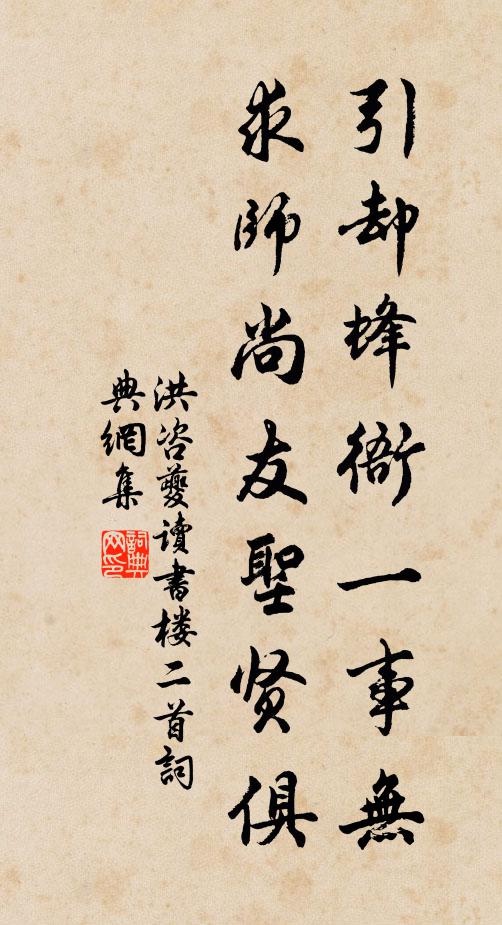 引却蜂衙一事無
求師尚友聖贤俱
洪咨夔讀書楼二首詞
典網集
詞典网印